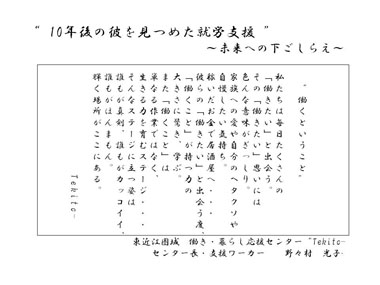 “ 10年後の彼を見つめた就労支援 ”
～未来への下ごしらえ～
“働くということ”
私たちは毎日たくさんの
「働きたい」と出会う。
その「働きたい」思いには
色んな意味がぎっしり。
家族への愛や自分のヘタクソや
自慢したい気持ち。
稼いだお金で居酒屋へ・・・
彼らの「働きたい」と出会う度、
「働くこと」が持つ力の
大きさに驚き、学ぶ。
また「働くこと」は
単なる作業ではなく、
生きる力を育むステージ・・・
そんなステージに立つ姿は
誰もが真剣、誰もがカッコイイ、
誰もがほんまもん。
輝く場所がここにある。
Tekito-
東近江圏域　働き・暮らし応援センター“Tekito-
センター長・支援ワーカー　野々村　光子